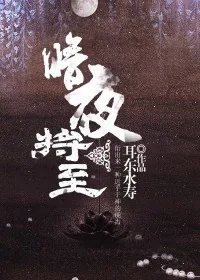 暗夜将至
耳东水寿
作品